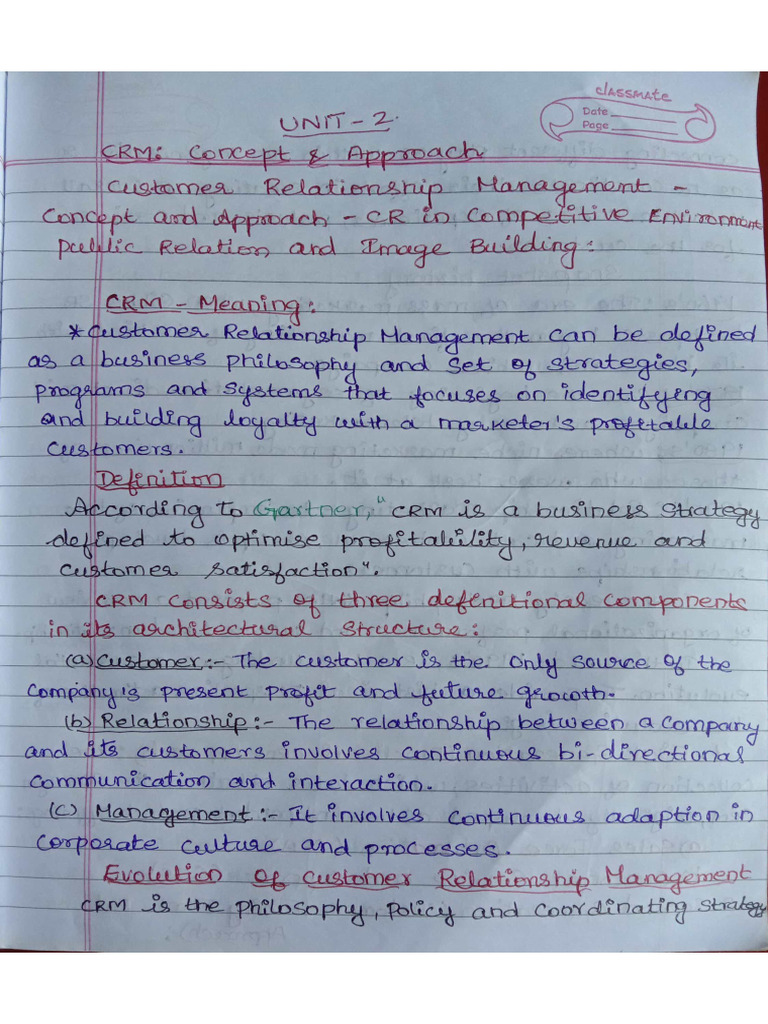 classmate
Date
Page
UNIT-2.
CRM: Concept & Approach
Customer Relationship Management -
Concept and Approach - CR in Competitive Environment
Public Relation and Image Building:
CRM - Meaning:
* Customer Relationship Management can be defined
as a business philosophy and set of strategies,
programs and systems that focuses on identifying
and building loyalty with a marketer's profitable
customers.
Definition
According to Gartner, "CRM is a business strategy
defined to optimise profitability, revenue and
customer satisfaction".
CRM consists of three definitional components
in its architectural structure:
(a) Customer:- The customer is the only source of the
company's present profit and future growth.
(b) Relationship:- The relationship between a company
and its customers involves continuous bi-directional
communication and interaction.
(c) Management:- It involves continuous adaption in
corporate culture and processes.
Evolution of Customer Relationship Management
CRM is the philosophy, policy and coordinating strategy